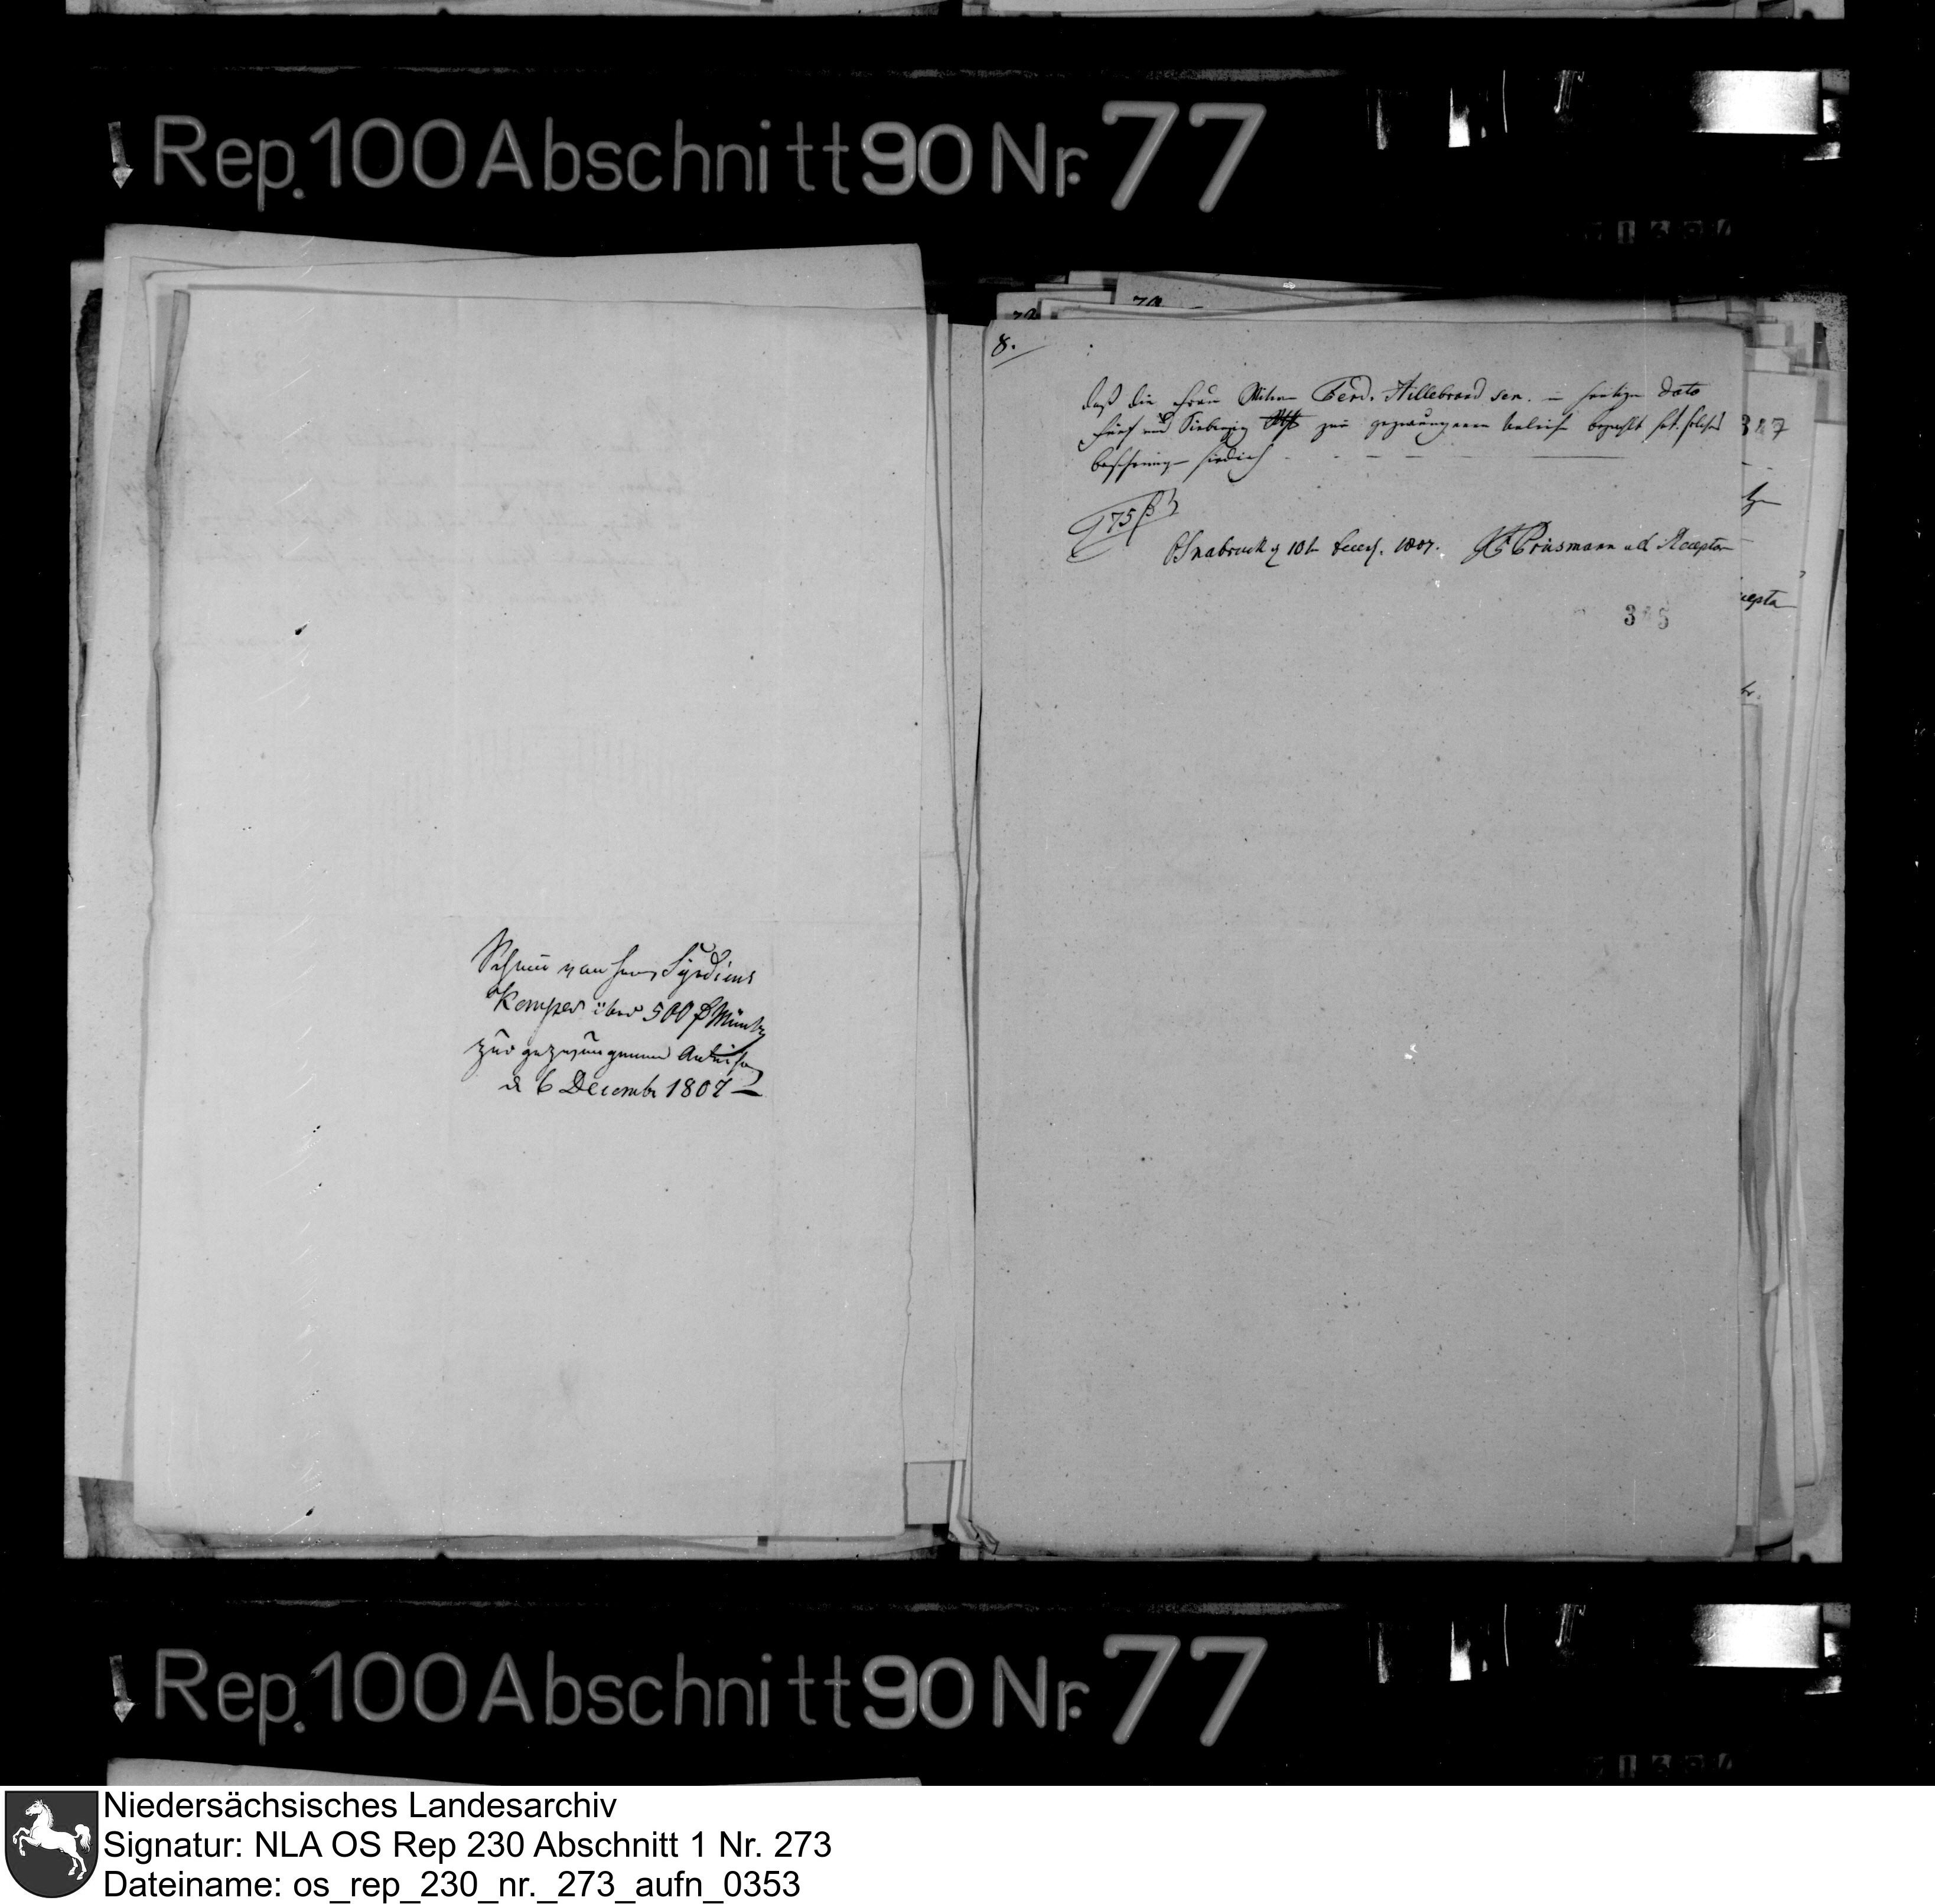 Rep. 100 Abschnitt 90 Nr. 77
Schein von Herrn Syndicus
Kemper über 500 rt Müntz
zur gezwungenen Anleihe
d 6 Decembr 1807
8.
daß die Frau Witwe Ferd. Hillebrand sen. heutigen dato
fünf und Siebenzig zur gezwungenen Anleihe bezahlt hat. solches
bescheinige hiedurch
75
Osnabruck d 10t Decbr. 1807. Prüsmann als Receptor
Rep. 100 Abschnitt 90 Nr. 77
Niedersächsisches Landesarchiv
Signatur: NLA OS Rep 230 Abschnitt 1 Nr. 273
Dateiname: os_rep_230_nr._273_aufn_0353